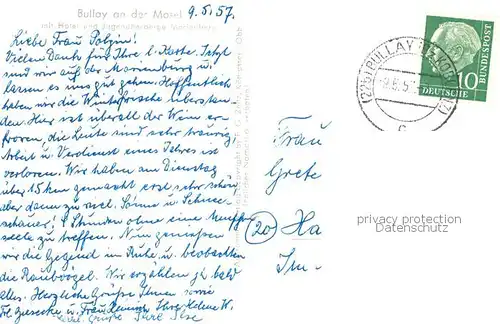 Bullay an der Mosel
mit Hotel und Jugendherberge Marienburg
9.5.57.
Liebe Frau Polzin!
Vielen Dank für Ihre l. Karte. Jetzt
sind wir auf der Marienburg u.
lassen es uns gut gehen. Hoffentlich
haben wir die Winterfrische überstan
den. Hier ist überall der Wein er-
froren, die Leute sind sehr traurig,
Arbeit u. Verdienst eines Jahres ist
verloren. Wir haben am Dienstag
über 15 km gemacht erst sehr schön
aber dann zu viel Sonne u. Schnee-
schauer, 4 Stunden ohne eine Menschen
seele zu treffen. Nun genießen
wir die Gegend in Ruhe u. beobachten
die Raubvögel. Wir erzählen Ih. bald
alles. Herzliche Grüße Ihnen sowie
Frl. u. Frau Ihre Helene W.
Grüße Ihre Ilse
(22b) BULLAY
-9.5.57
c
10
DEUTSCHE
BUNDESPOST
Frau
Grete
20 Ha
Im
privacy protection
Datenschutz